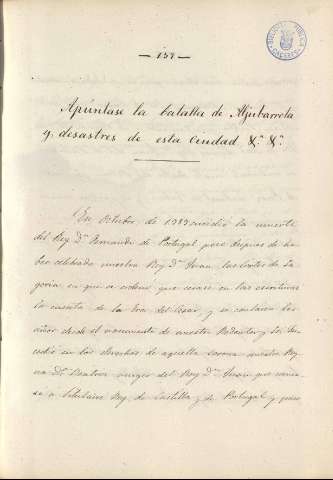 — 157 —
Apúntase la batalla de Aljubarrota
y desastres de esta Ciudad &.ª &.ª
En Octubre de 1383 sucedió la muerte
del Rey D.ⁿ Fernando de Portugal poco despues de ha-
ber celebrado nuestro Rey D.ⁿ Juan, las Cortes de Se-
govia en que se ordenó que cesase en las escrituras
la cuenta de la Era del Cesar, y se contasen los
años desde el nacimiento de nuestro Redentor y su-
cedió en los derechos de aquella corona nuestra Rey-
na D.ª Beatriz muger del Rey D.ⁿ Juan que comen-
só a titularse Rey de Castilla y de Portugal y puso